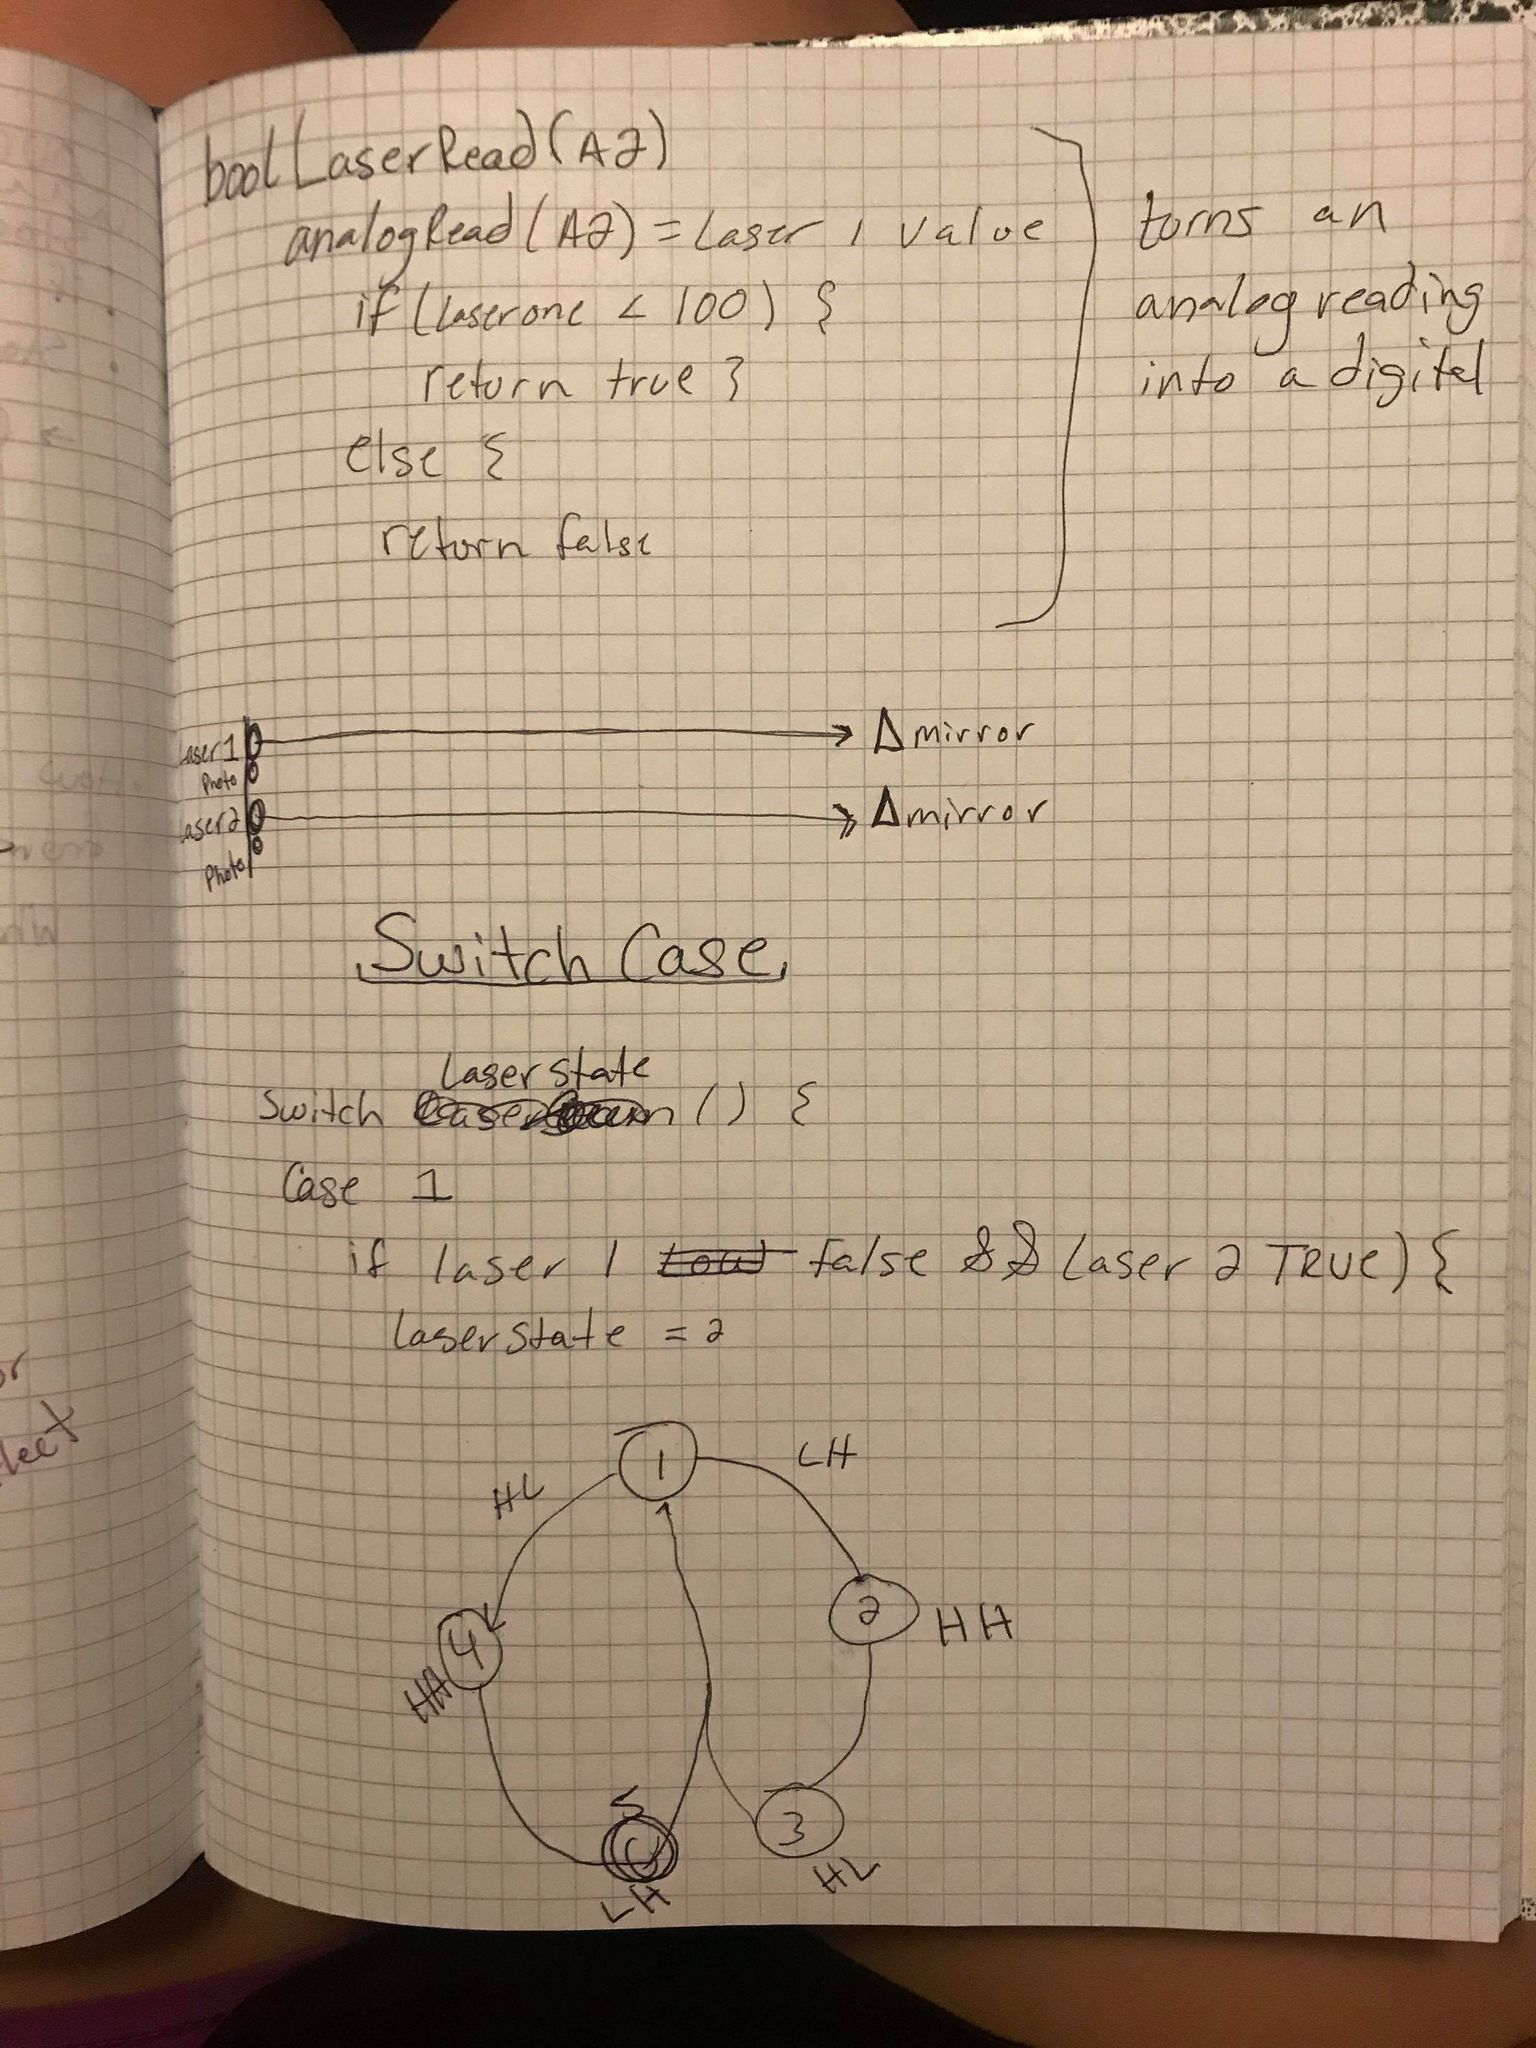 bool LaserRead(A2)
analogRead(A2) = Laser 1 value
if (laserone < 100) {
return true }
else {
return false
turns an
analog reading
into a digital
Laser1
Photo
Laser2
Photo
mirror
mirror
Switch Case
Laser state
Switch () {
Case 1
if laser 1 false && Laser 2 TRUE) {
laser state = 2
1
LH
HL
2
HH
4
HH
5
LH
3
HL